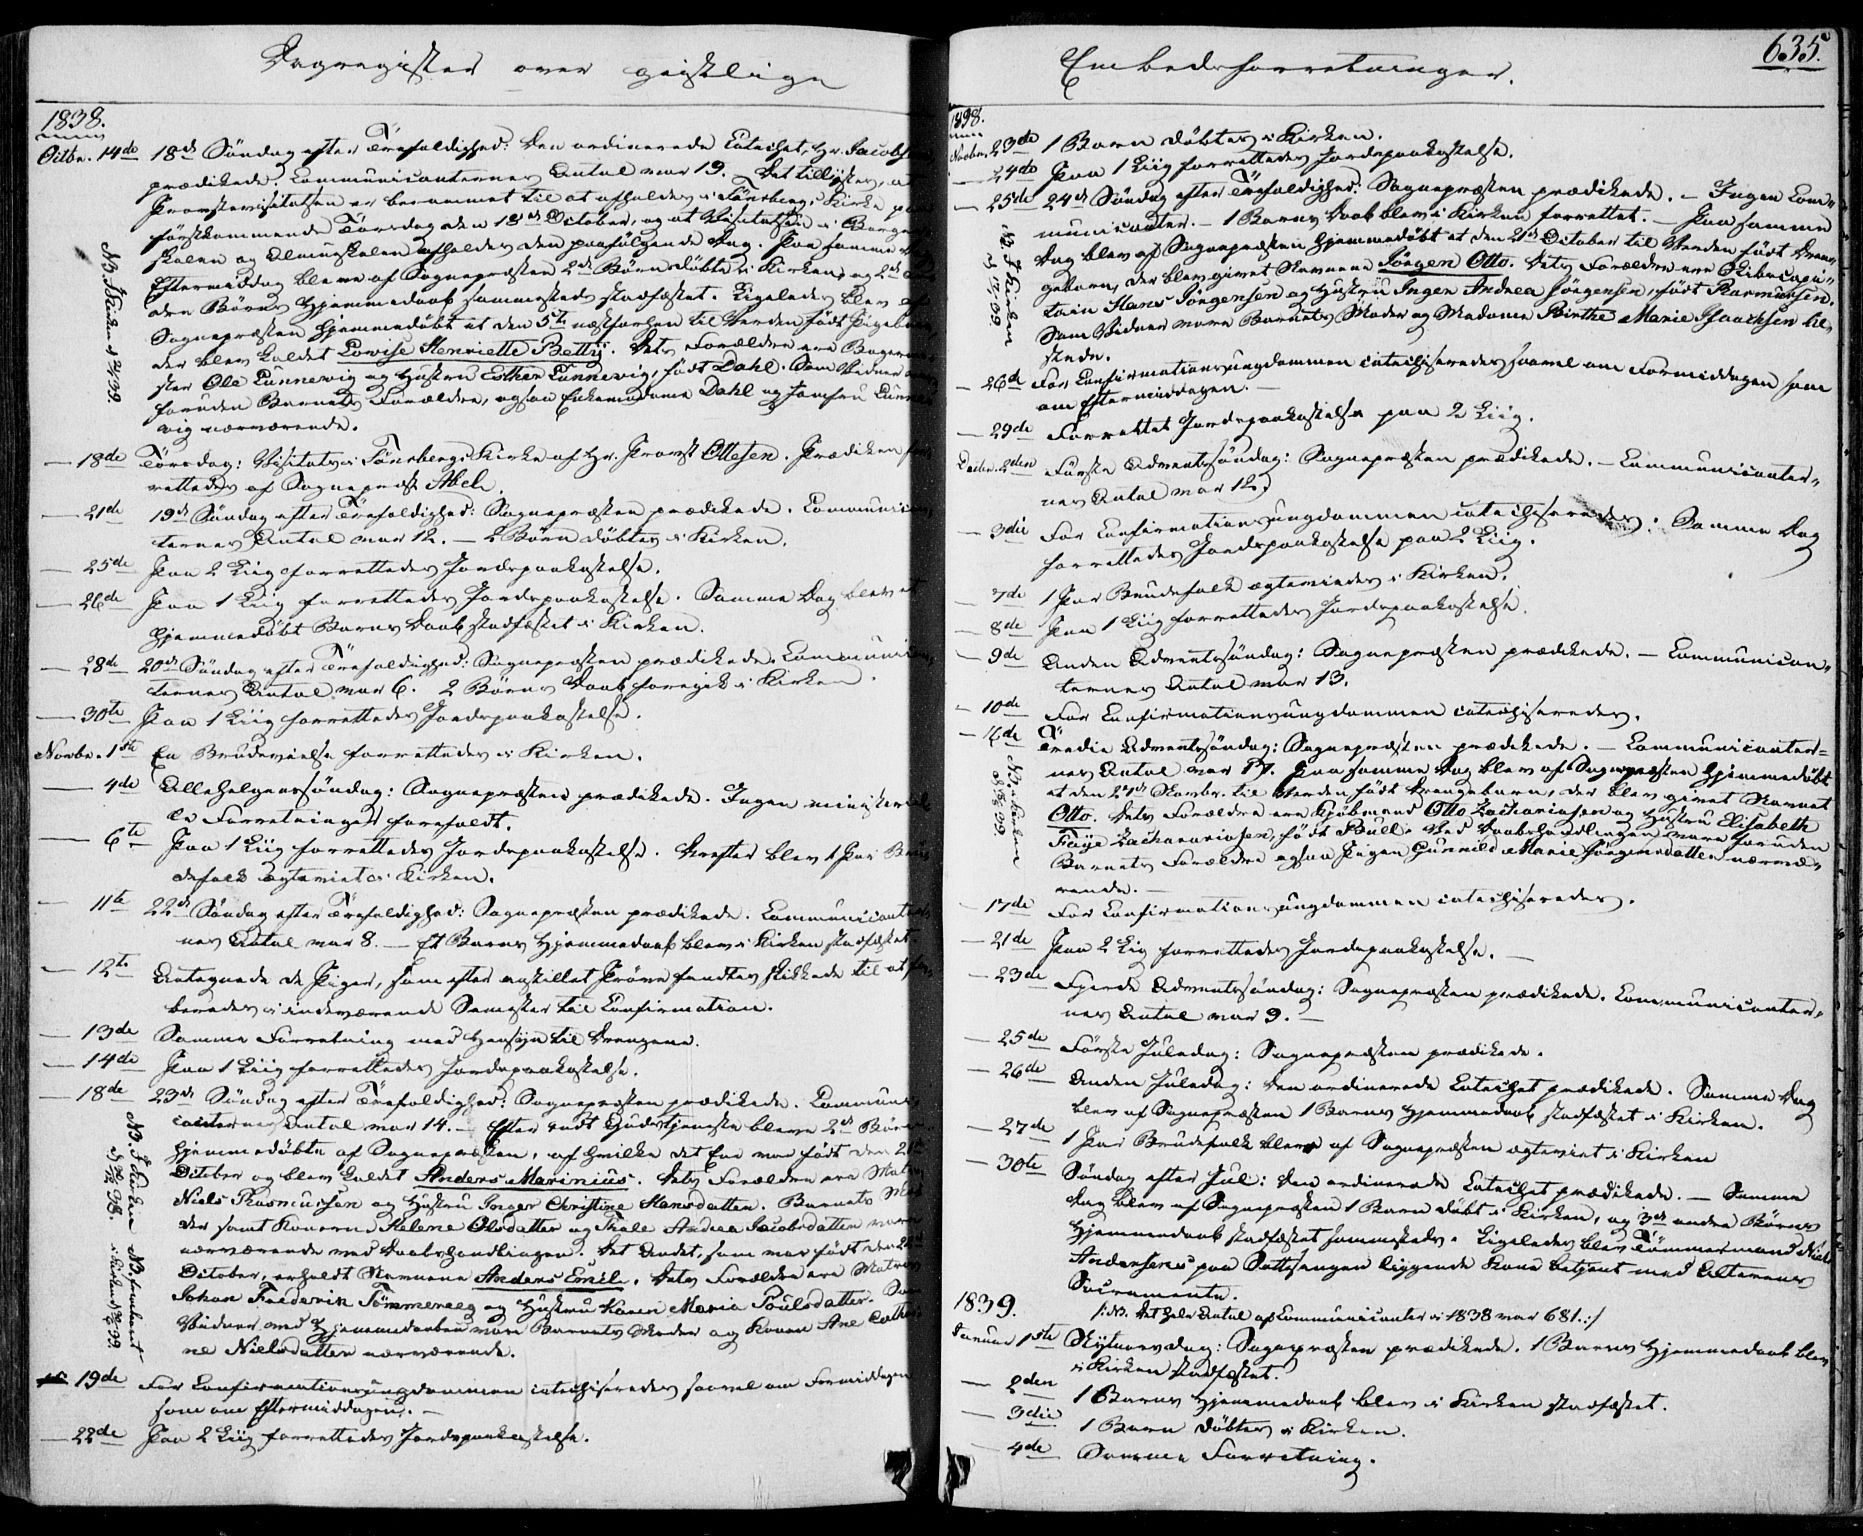 Dagregister over geistlige
1838.
Octbr. 14de 18de Søndag efter Trefoldighed: Den ordinerede Catechet, Hr. Jacobsen
prædikede. Communicanternes Antal var 19. Det tillystes, at
Provstevisitatsen er berammet til at afholdes i Tönsbergs Kirke paa
førstkommende Torsdag den 18de October, og at Visitatsen i Borger-
skolen og Almueskolen afholdes den paafølgende Dag. Paa samme
Eftermiddag bleve af Sognepræsten 2de Børn døbte i Kirken, og 2de an-
dre Børns Hjemmedaab sammesteds stadfæstet. Ligeledes blev af
Sognepræsten hjemmedøbt et den 5te næstforhen til Verden født Pigebarn,
der blev kaldet Lovise Henriette Betty. Dets Forældre ere Bagerme-
ster Ole Lunnevig og Hustru Esther Lunnevig, født Dahl. Som Vidner vare
foruden Barnets Forældre, ogsaa Enkemadame Dahl og Jomfru Lunne-
vig nærværende.
NB. I Kirken d
— 18de Torsdag: Visitats i Tönsbergs Kirke af Hr. Provst Ottesen. Prædiken for-
rettedes af Sognepræst Abel.
— 21de 19de Søndag efter Trefoldighed: Sognepræsten prædikede. Communican-
ternes Antal var 12. — 2 Børn døbtes i Kirken.
— 25de Paa 2 Liig forrettedes Jordspaakastelse.
— 26de Paa 1 Liig forrettedes Jordspaakastelse. Samme Dag blev et
hjemmedøbt Barns Daab stadfæstet i Kirken.
— 28de 20de Søndag efter Trefoldighed: Sognepræsten prædikede. Communican-
ternes Antal var 6. 2 Børns Daab foregik i Kirken.
— 30te Paa 1 Liig forrettedes Jordspaakastelse.
Novbr. 1ste En Brudevielse forrettedes i Kirken.
— 4de Allehelgenssøndag: Sognepræsten prædikede. Ingen ministeriel-
le Forretninger forefaldt.
— 6te Paa 1 Liig forrettedes Jordspaakastelse. Derefter blev 1 Par Bru-
defolk ægteviet i Kirken.
— 11te 22de Søndag efter Trefoldighed: Sognepræsten prædikede. Communicanter-
nes Antal var 8. — Et Barns Hjemmedaab blev i Kirken stadfæstet.
— 12te Antegnede de Piger, som efter anstillet Prøve fandtes skikkede til at for-
beredes i indeværende Semester til Confirmation.
— 13de Samme Forretning med Hensyn til Drengene.
— 14de Paa 1 Liig forrettedes Jordspaakastelse.
— 18de 23de Søndag efter Trefoldighed: Sognepræsten prædikede. Communi-
canternes Antal var 14. — Efter endt Gudstjeneste bleve 2de Børn
hjemmedøbte af Sognepræsten, af hvilke det Ene var født den
October og blev kaldet Anders Marinius. Dets Forældre ere Matros
Niels Rasmussen og Hustru Inger Christine Hansdatter. Barnets Mo-
der samt Konerne Helene Olsdatter og Andrea Jacobsdatter vare
nærværende ved Daabshandlingen. Det Andet, som var født den
October, erholdt Navnene Anders Emil. Dets Forældre ere Matros
Johan Frederik Tömmereeg og Hustru Karen Maria Poulsdatter. Som
Vidner ved Hjemmedaaben vare Barnets Moder og Konen Ane Cathri-
ne Nielsdatter nærværende.
NB. I Kirken
NB. frembaaret i Kirken d
— 19de For Confirmationsungdommen catechiseredes saavel om Formiddagen
som om Eftermiddagen. —
— 22de Paa 2 Liig forrettedes Jordspaakastelse.
Embedsforretninger.
635.
1838.
Novbr. 23de 1 Barn døbtes i Kirken.
— 24de Paa 1 Liig forrettedes Jordspaakastelse.
— 25de 24de Søndag efter Trefoldighed: Sognepræsten prædikede. — Ingen Com-
municanter. — 1 Barns Daab blev i Kirken forrettet. — Paa samme
Dag blev af Sognepræsten hjemmedøbt et den 21de October til Verden født Dren-
gebarn, der blev givet Navnene Jörgen Otto. Dets Forældre ere Skibscapi-
tain Hans Jörgensen og Hustru Inger Andrea Jörgensen, født Rasmussen.
Som Vidner vare Barnets Moder og Madame Birthe Marie Isaachsen til
stede.
NB. I Kirken
— 26de For Confirmationsungdommen catechiseredes saavel om Formiddagen som
om Eftermiddagen. —
— 29de Forrettet Jordspaakastelse paa 2 Liig.
Decbr. 2den Første Adventssøndag: Sognepræsten prædikede. — Communicanter-
nes Antal var 12.
— 3die For Confirmationsungdommen catechiseredes. Samme Dag
forrettedes Jordspaakastelse paa 2 Liig.
— 7de 1 Par Brudefolk ægteviedes i Kirken.
— 8de Paa 1 Liig forrettedes Jordspaakastelse.
— 9de Anden Adventssøndag: Sognepræsten prædikede. — Communican-
ternes Antal var 13.
— 10de For Confirmationsungdommen catechiseredes.
— 16de Tredie Adventssøndag: Sognepræsten prædikede. — Communicanter-
nes Antal var 17. Paa samme Dag blev af Sognepræsten hjemmedøbt
et den 27de Novbr. til Verden født Drengebarn, der blev givet Navnet
Otto. Dets Forældre ere Kjöbmand Otto Zachariasen og Hustru Elisabeth
Faye Zachariasen, født Bull. Ved Daabshandlingen vare foruden
Barnets Forældre ogsaa Pigen Gunnild Marie Jörgensdatter nærvæ-
rende. —
NB. i Kirken
— 17de For Confirmationsungdommen catechiseredes.
— 21de Paa 2 Liig forrettedes Jordspaakastelse. —
— 23de Fjerde Adventssøndag: Sognepræsten prædikede. Communicanter-
nes Antal var 9. —
— 25de Første Juledag: Sognepræsten prædikede.
— 26de Anden Juledag: Den ordinerede Catechet prædikede. Samme Dag
blev af Sognepræsten 1 Barns Hjemmedaab stadfæstet i Kirken.
— 27de 1 Par Brudefolk bleve af Sognepræsten ægteviet i Kirken
— 30te Søndag efter Jul: Den ordinerede Catechet prædikede. — Samme
Dag blev af Sognepræsten 1 Barn døbt i Kirken, og 3de andre Børns
Hjemmedaab stadfæstet sammesteds. Ligeledes blev Tömmermand Niels
Andersens paa Sottesengen liggende Kone betjent med Alterens
Sacramente.
1839.
/: NB. Det hele Antal af Communicanter i 1838 var 681. :/
Januar 1ste Nytaarsdag: Sognepræsten prædikede. 1 Barns Hjemmedaab blev
i Kirken stadfæstet.
— 2den 1 Barns Hjemmedaab blev i Kirken stadfæstet.
— 3die 1 Barn døbtes i Kirken.
— 4de Samme Forretning.